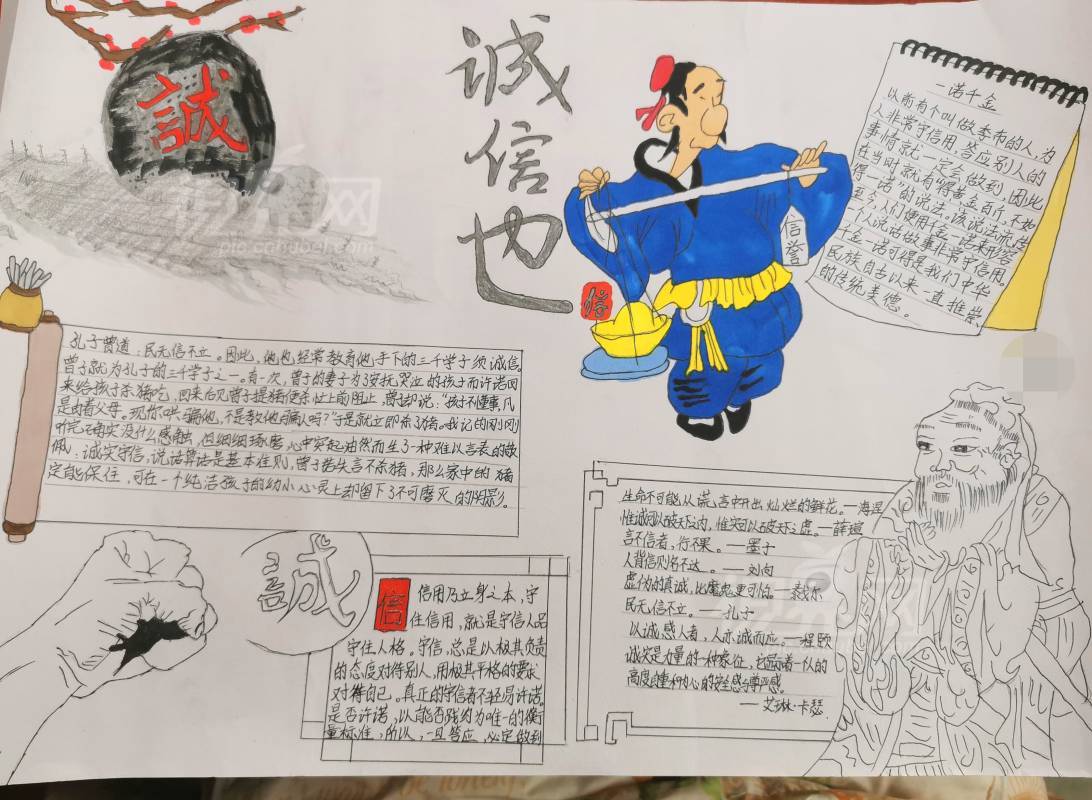 誠
诚
信
也
一诺千金
以前有个叫做季布的人,为
人非常守信用,答应别人的
事情就一定会做到,因此
在当时就有“得黄金百斤,不如
得一诺”的说法。该说法流传
至今人们便用千金一诺来形容
一个人说话做事非常守信用。
千金一诺可得是我们中华
民族自古以来一直推崇
的传统美德。
信誉
信
孔子曾道:民无信不立。因此,他也经常教育他手下的三千学子须诚信。
曾子就为孔子的三千学子之一。有一次,曾子的妻子为了安抚哭泣的孩子而许诺回
来给孩子杀猪吃,回来后见曾子提猪便杀忙上前阻止,曾子却说:“孩子不懂事,凡
是肉看父母。现你哄骗他,不是教他骗人吗?”于是就立即杀了猪。我记的刚刚
听完确实没什么感触,但细细琢磨心中突起油然而生了一种难以言表的敬
佩:诚实守信,说话算话是基本准则,曾子若失言不杀猪,那么家中的猪
定能保住,可在一个纯洁孩子的幼小心灵上却留下了不可磨灭的阴影。
誠
信
信用乃立身之本,守
住信用,就是守信人品
守住人格。守信,总是以极其负责
的态度对待别人,用极其严格的要求
对待自己。真正的守信者不轻易许诺。
是否许诺,以能否践约为唯一的衡
量标准,所以,一旦答应,必定做到
生命不可能从谎言中开出灿烂的鲜花。—海涅
惟诚可以破天下之伪,惟实可以破天下之虚。—薛瑄
言不信者,行不果。——墨子
人背信则名不达。——刘向
虚伪的真诚,比魔鬼更可怕。—泰戈尔
民无信不立。——孔子
以诚感人者,人亦诚而应。—程颐
诚实是力量的一种象征,它显示着一个人的
高度自重和内心的安全感与尊严感。
—艾琳·卡瑟